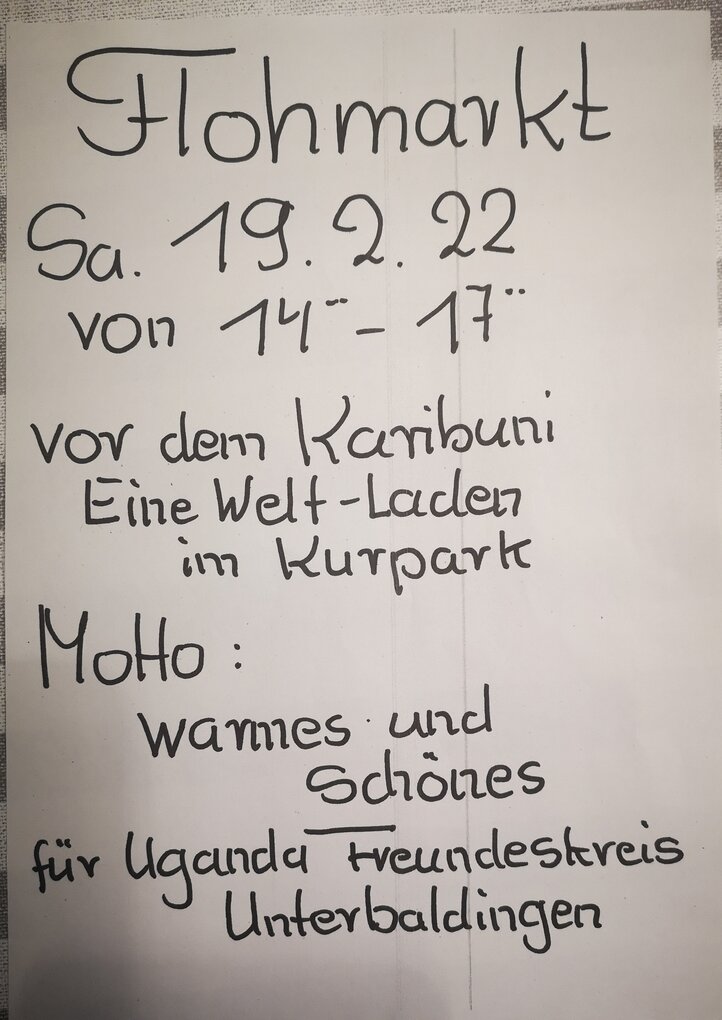 Flohmarkt
Sa. 19. 2. 22
von 14⁻⁻ - 17⁻⁻
vor dem Karibuni
Eine Welt-Laden
im Kurpark
Motto :
warmes und
Schönes
für Uganda Freundeskreis
Unterbaldingen